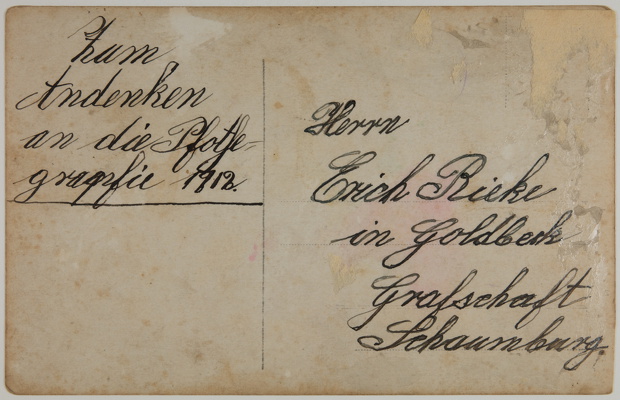 Zum
Andenken
an die Pfotfe-
grapfie 1912.
Herrn
Erich Rieke
in Goldbeck
Grafschaft
Schaumburg.